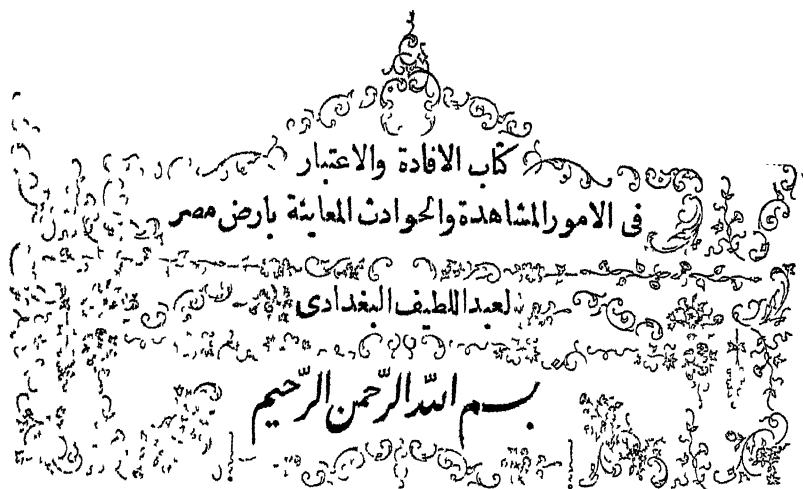 كتاب الافادة والاعتبار
فى الامور المشاهدة والحوادث المعاينة بارض مصر
لعبد اللطيف البغدادى
بسم الله الرّحمن الرّحيم